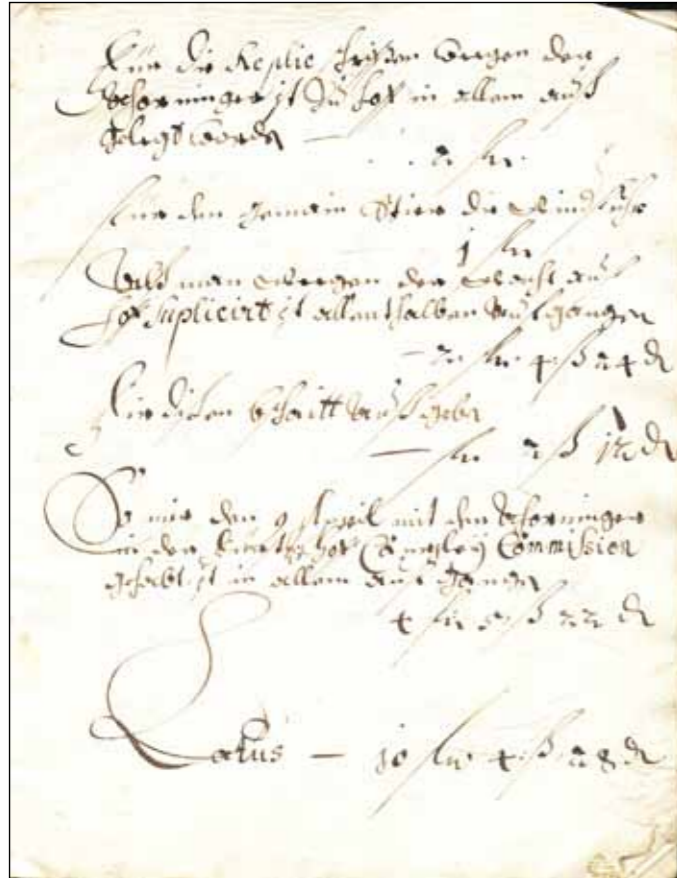 Für die Replic schrifften wegen der
Schorninger ist zu hof in allem auß
gelegt worden —
2 fl.
Für den gemein Stier die
1 fl
Alß man wegen der auf
hof Supliciert ist allenthalben auß gangen
— 2 fl 4 ß 24 d
Für disen bschaitt auß geben
— fl 2 ß 12 d
So mir den 9 April mit den Schorninger
in der hof Canzley Commission
gehabt ist in allem auß gangen
4 fl 5 ß 22 d
Latus — 10 fl 4 ß 28 d